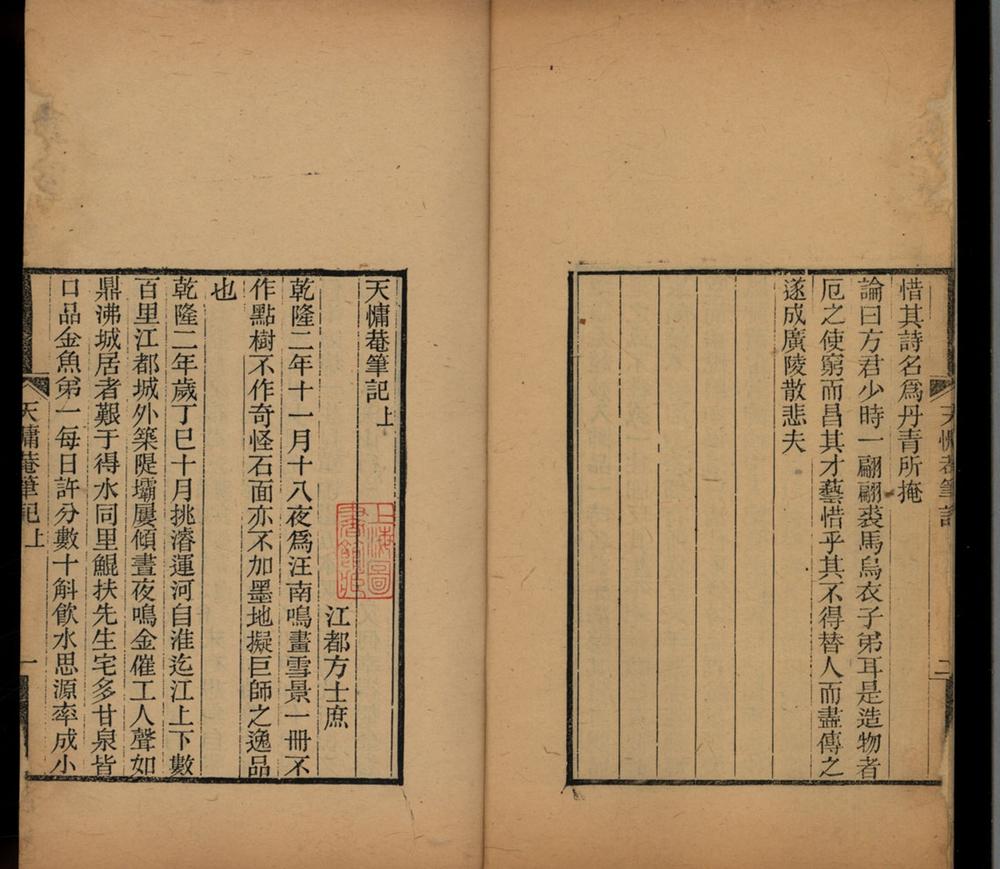 惜其詩名爲丹青所掩
論曰方君少時一翩翩裘馬烏衣子弟耳是造物者
厄之使窮而昌其才藝惜乎其不得替人而盡傳之
遂成廣陵散悲夫
天慵菴筆記
二
天慵菴筆記上
上海圖書館藏
江都方士庶
乾隆二年十一月十八夜爲汪南鳴畫雪景一冊不
作點樹不作奇怪石面亦不加墨地擬巨師之逸品
也
乾隆二年歲丁巳十月挑濬運河自淮迄江上下數
百里江都城外築隄壩屢傾晝夜鳴金催工人聲如
鼎沸城居者艱于得水同里鯤扶先生宅多甘泉皆
口品金魚弟一每日許分數十斛飲水思源率成小
天慵菴筆記上
一